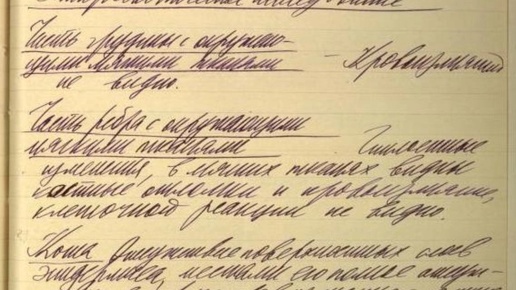 Гистологическое исследование
Часть грудины с окружаю-
щими мягкими тканями - Кровоизлияний
не видно.
Часть ребра с окружающими
мягкими тканями Гнилостные
изменения, в мягких тканях видны
костные отломки и кровоизлияние,
клеточной реакции не видно.
Кожа Отсутствие поверхностных слоев
эпидермиса, местами его полное отсут-